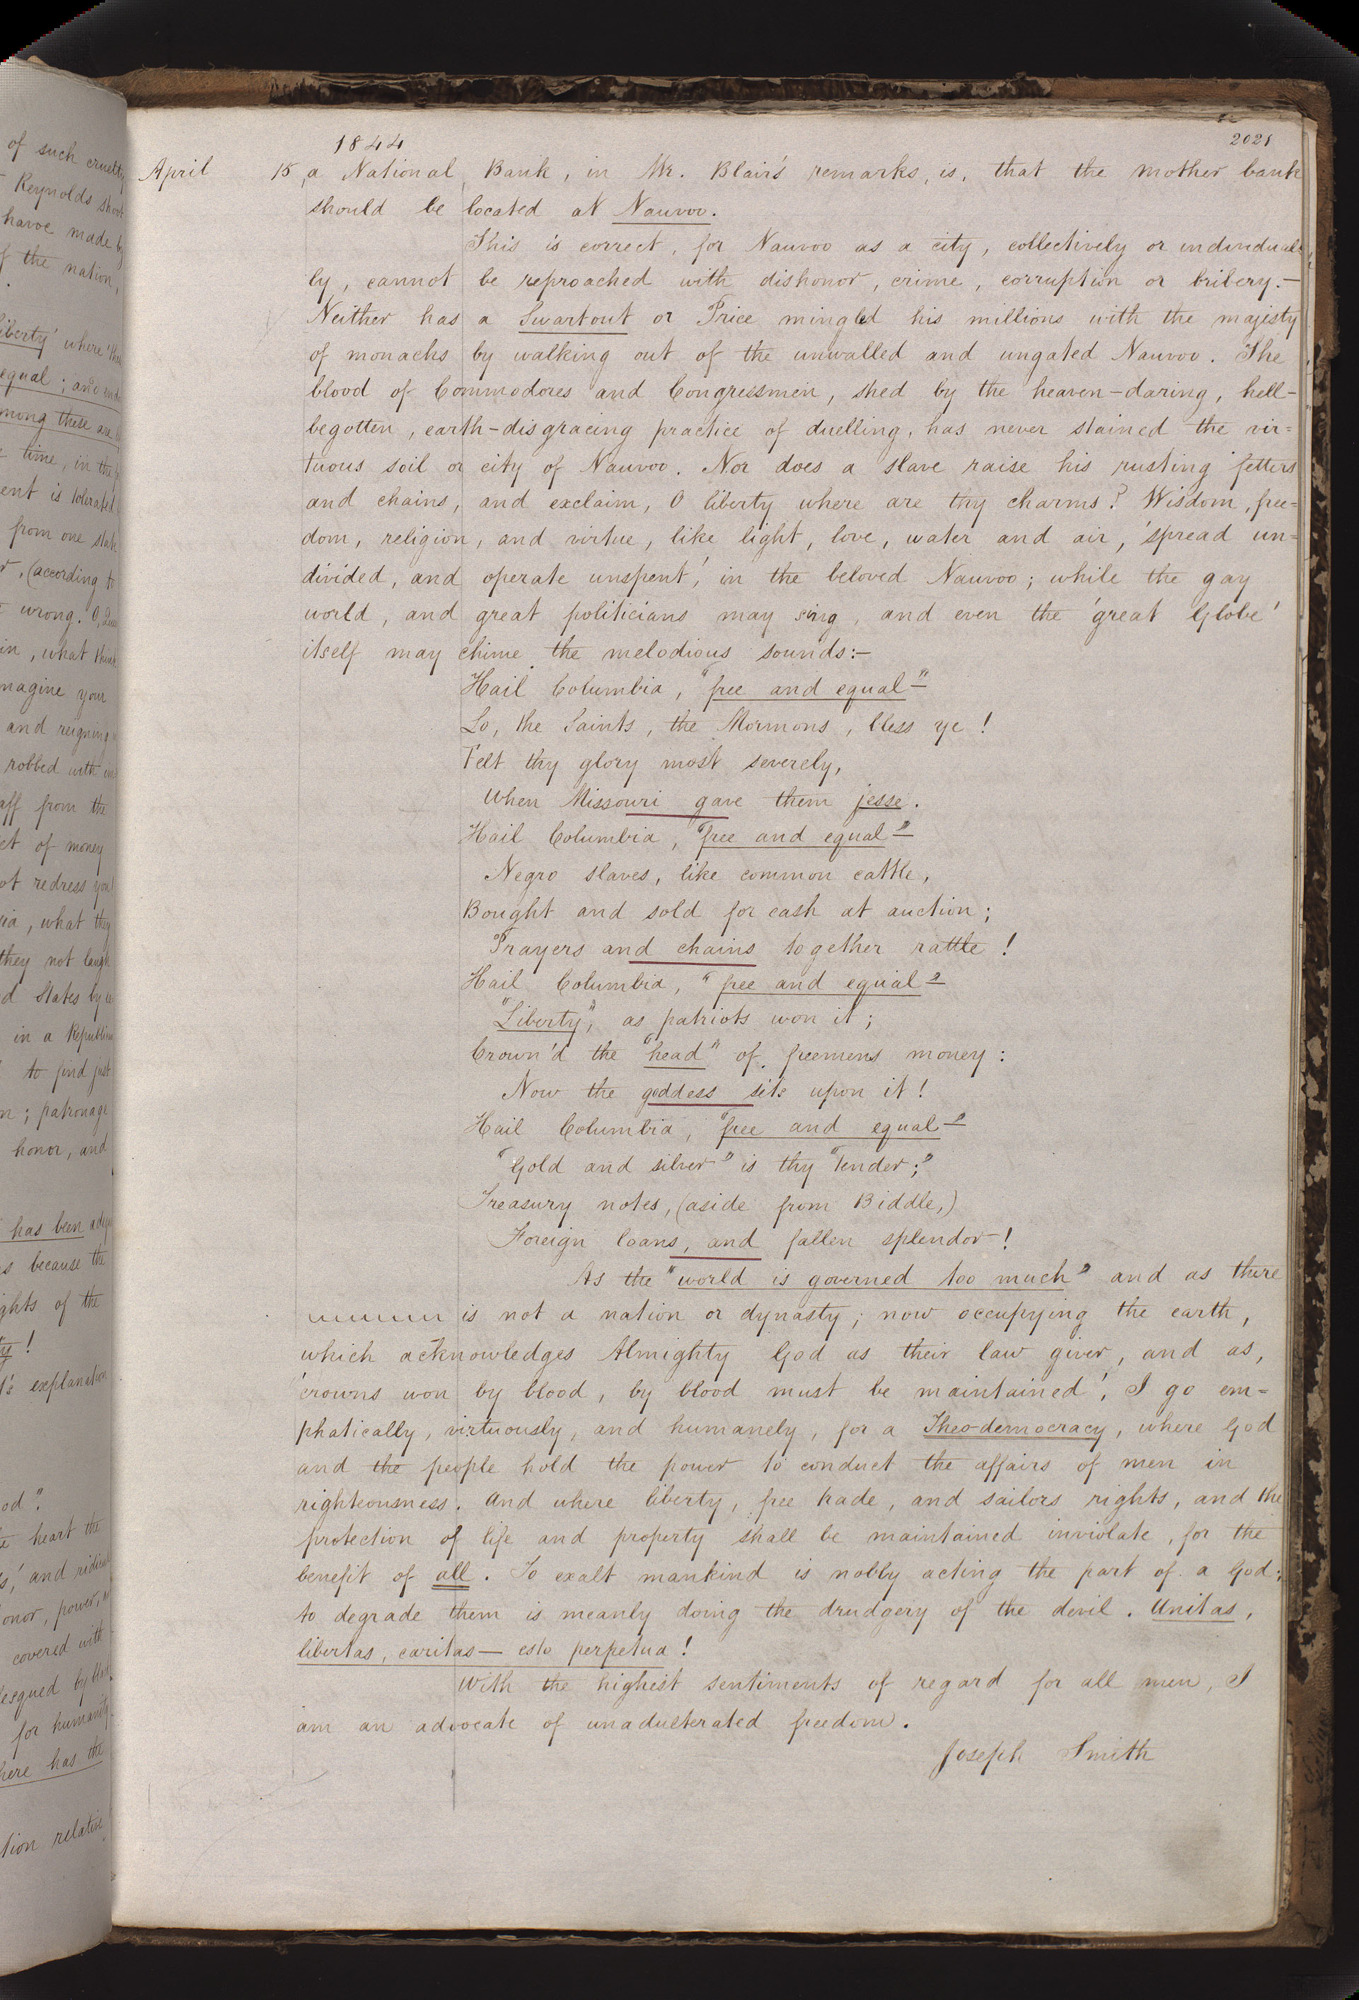 of such cruelty
Reynolds should
have made by
of the nation,
liberty' where 'then
equal; and
mong these are
time, in the
ent is tolerated
from one state
(according to
wrong. O,
in, what think
magine your
and reigning
robbed with
aff from the
et of money
ot redress you
ia, what they
they not laugh
d States by
in a Republic
to find just
n; patronage
honor, and
has been
s because the
ghts of the
ty!
t's explanation
od".
heart the
s,' and ridicule
onor, power,
covered with
lesqued by
for humanity
here has the
tion relative
1844
2021
April 15 a National Bank, in Mr. Blair's remarks, is, that the mother bank
should be located at Nauvoo.
This is correct, for Nauvoo as a city, collectively or individual-
ly, cannot be reproached with dishonor, crime, corruption or bribery.—
Neither has a Swartout or Price mingled his millions with the majesty
of monachs by walking out of the unwalled and ungated Nauvoo. The
blood of Commodores and Congressmen, shed by the heaven-daring, hell-
begotten, earth-disgracing practice of duelling, has never stained the vir=
tuous soil or city of Nauvoo. Nor does a slave raise his rusting fetters
and chains, and exclaim, O liberty where are thy charms? Wisdom, free=
dom, religion, and virtue, like light, love, water and air, 'spread un=
divided, and operate unspent,' in the beloved Nauvoo; while the gay
world, and great politicians may sing, and even the 'great Globe'
itself may chime the melodious sounds:—
Hail Columbia, "free and equal"—
Lo, the Saints, the Mormons, bless ye!
Felt thy glory most severely,
When Missouri gave them jesse.
Hail Columbia, "free and equal"—
Negro slaves, like common cattle,
Bought and sold for cash at auction;
Prayers and chains together rattle!
Hail Columbia, "free and equal"—
"Liberty", as patriots won it;
Crown'd the "head" of freemens money:
Now the goddess sits upon it!
Hail Columbia, "free and equal"—
"Gold and silver" is thy "tender;"
Treasury notes, (aside from Biddle,)
Foreign loans, and fallen splendor—!
As the "world is governed too much" and as there
is not a nation or dynasty; now occupying the earth,
which acknowledges Almighty God as their law giver, and as,
'crowns won by blood, by blood must be maintained', I go em=
phatically, virtuously, and humanely, for a Theo-democracy, where God
and the people hold the power to conduct the affairs of men in
righteousness. And where liberty, free trade, and sailors rights, and the
protection of life and property shall be maintained inviolate, for the
benefit of all. To exalt mankind is nobly acting the part of a God;
to degrade them is meanly doing the drudgery of the devil. Unitas,
libertas, caritas— esto perpetua!
With the highest sentiments of regard for all men, I
am an advocate of unadulterated freedom.
Joseph Smith